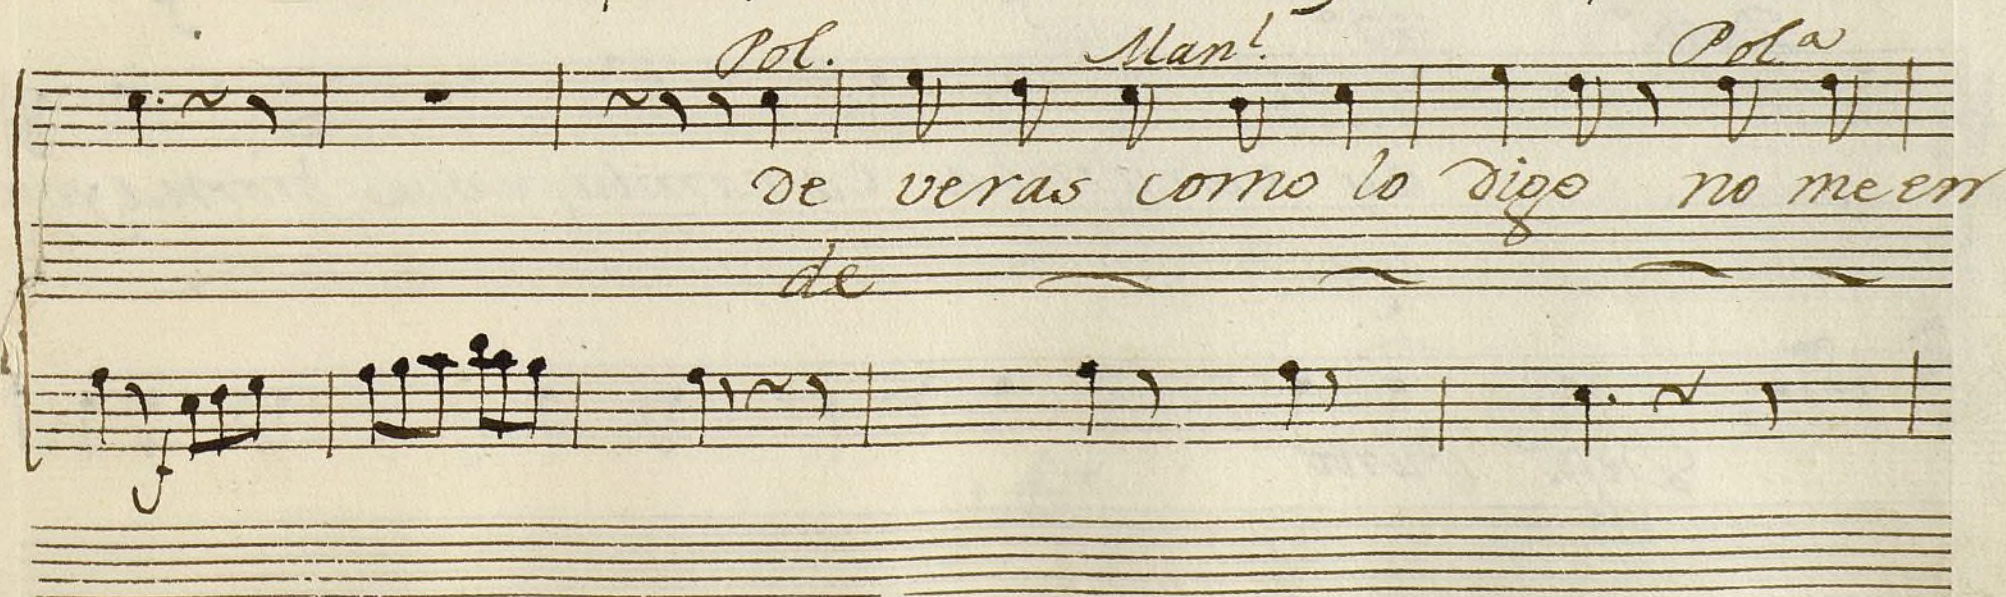 Pol. Manl. Pola
De veras como lo digo no me en
de
f